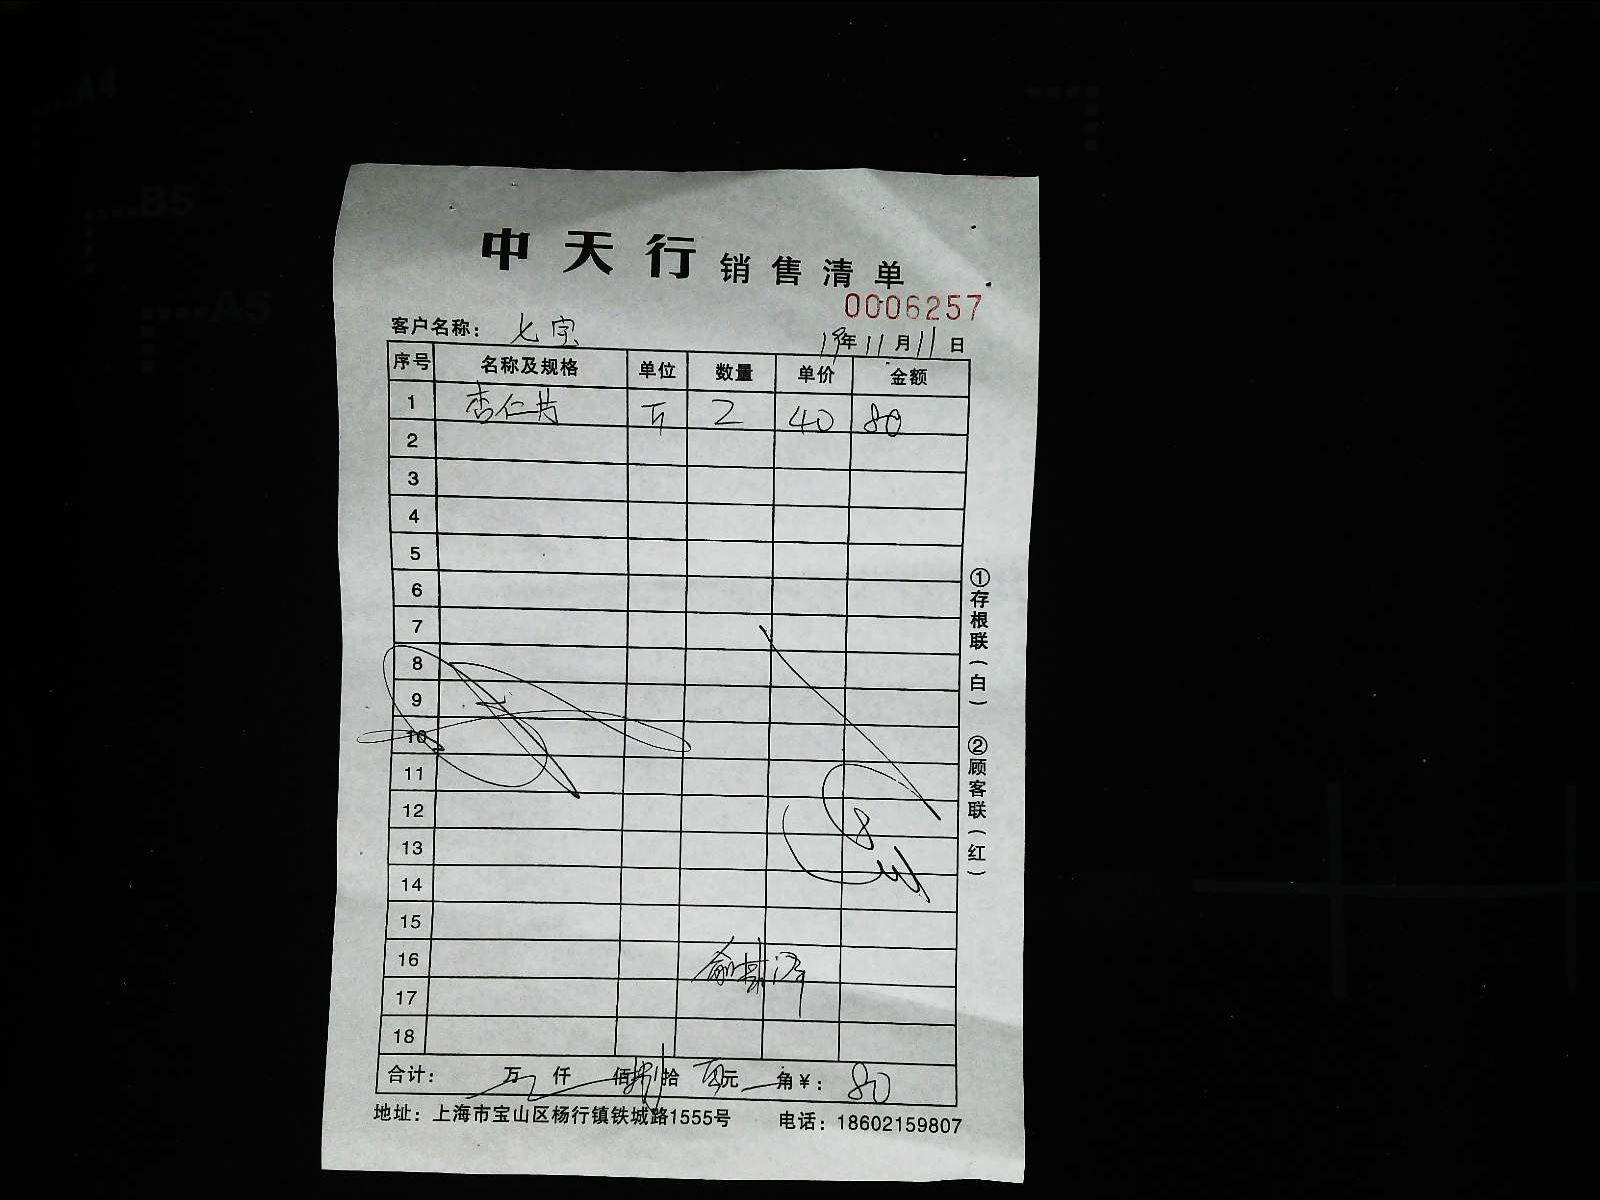 中天行 销售清单
0006257
客户名称： 七宝
19年11月11日
序号 名称及规格 单位 数量 单价 金额
1 杏仁片 斤 2 40 80
2
3
4
5
6
7
8
9
10
11
12
13
14
15
16
17
18
合计： 万 仟 佰捌拾 元 角￥：80
地址：上海市宝山区杨行镇铁城路1555号 电话：18602159807
①存根联（白） ②顾客联（红）
A4
B5
A5